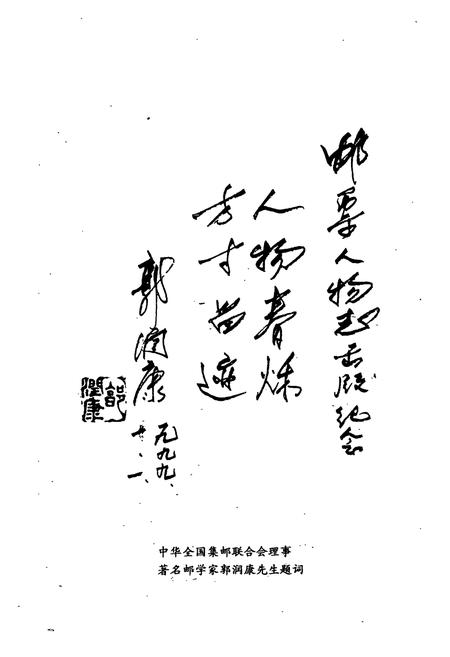 邮票人物志出版纪念
人物春秋
方寸留迹
郭润康
一九九九、
十、一、
郭
润康
中华全国集邮联合会理事
著名邮学家郭润康先生题词